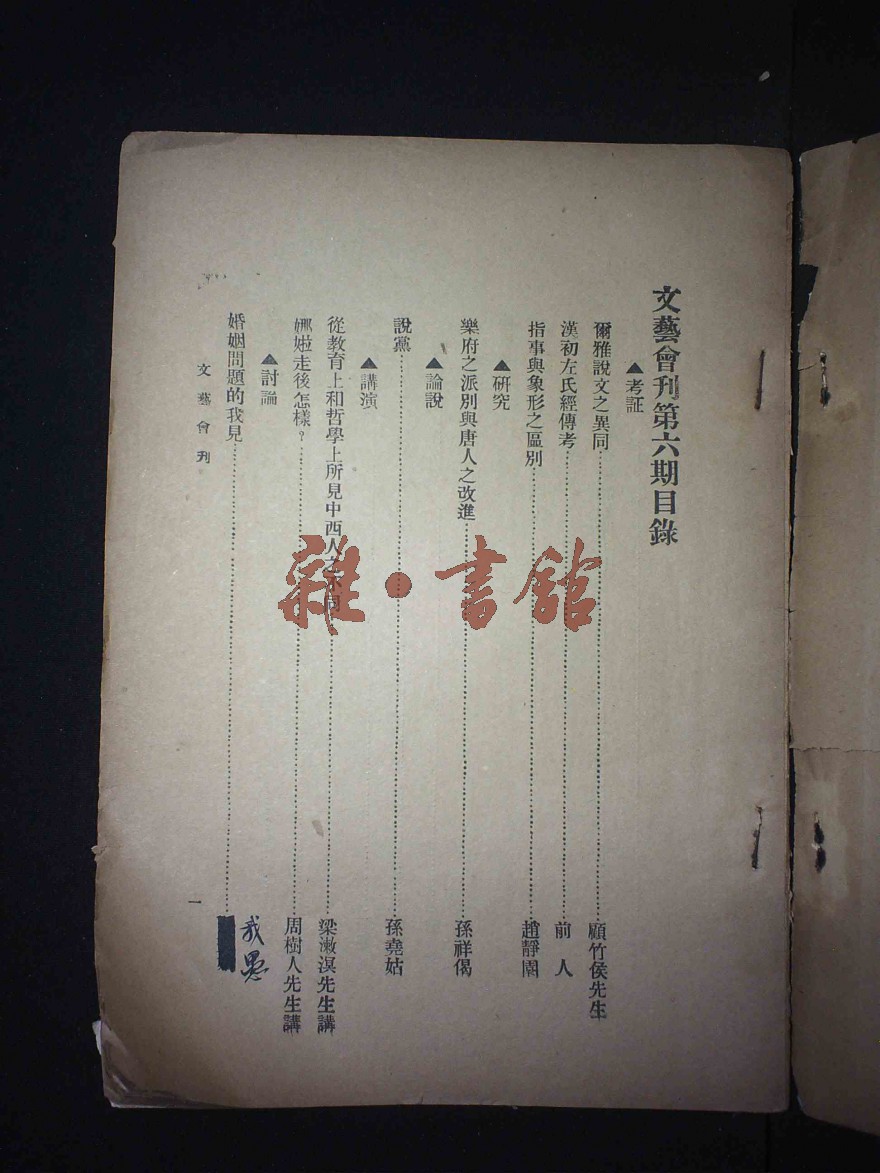 文藝會刊第六期目錄
▲考証
爾雅說文之異同……顧竹侯先生
漢初左氏經傳考……前人
指事與象形之區別……趙靜園
▲研究
樂府之派別與唐人之改進……孫祥偈
▲論說
說黨……孫堯姑
▲講演
從教育上和哲學上所見中西人之不同……梁漱溟先生講
娜拉走後怎樣？……周樹人先生講
▲討論
婚姻問題的我見……
我愚
文藝會刊
一
雜·書館